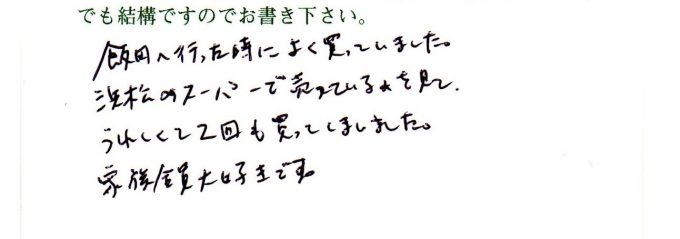 でも結構ですのでお書き下さい。
飯田へ行った時によく買っていました。
浜松のスーパーで売っているのを見て、
うれしくて2回も買ってしましました。
家族全員大好きです。